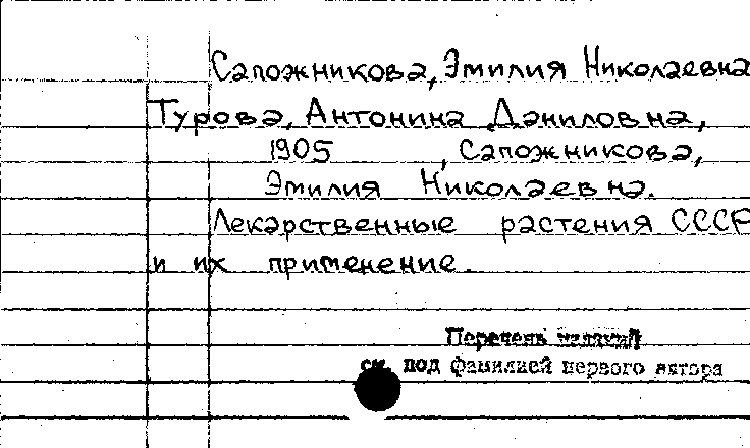 Сапожникова, Эмилия Николаевна
Турова, Антонина Даниловна,
1905 , Сапожникова,
Эмилия Николаевна.
Лекарственные растения СССР
и их применение.
Перечень изданий
см. под фамилией первого автора